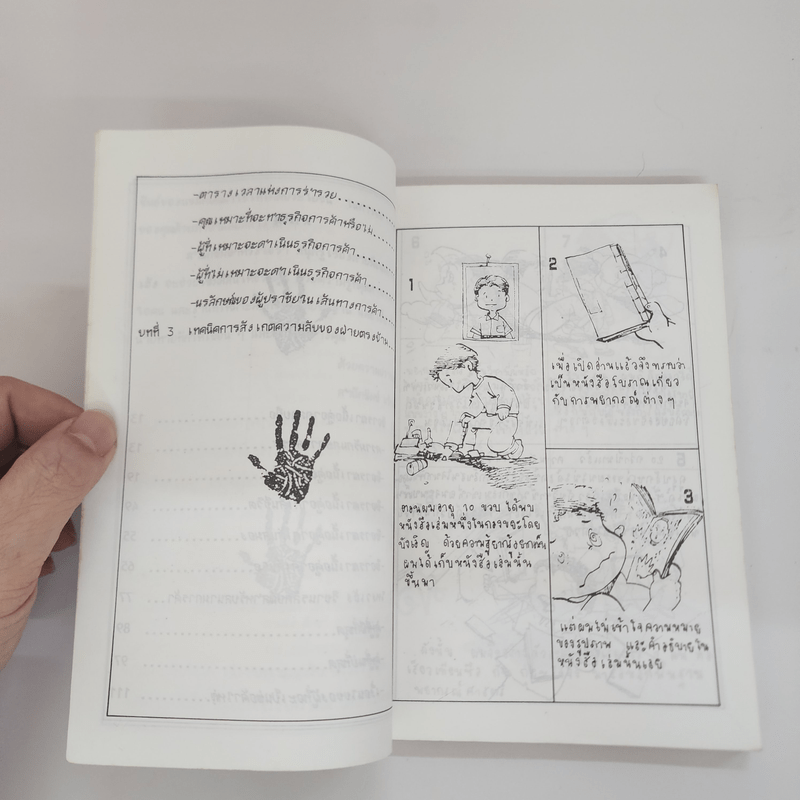 -ตารางเวลาแห่งการร่ำรวย..........
-คุณเหมาะที่จะทำธุรกิจการค้าหรือไม่..........
-ผู้ที่เหมาะจะดำเนินธุรกิจการค้า..........
-ผู้ที่ไม่เหมาะจะดำเนินธุรกิจการค้า..........
-นรลักษณ์ของผู้ปราชัยในเส้นทางการค้า..........
บทที่ 3 เทคนิคการสังเกตความลับของฝ่ายตรงข้าม..........
1
ตอนผมอายุ 10 ขวบ ได้พบ
หนังสือเล่มหนึ่งในกองขยะโดย
บังเอิญ ด้วยความอยากรู้อยากเห็น
ผมได้เก็บหนังสือเล่มนั้น
ขึ้นมา
2
เมื่อเปิดอ่านแล้วจึงทราบว่า
เป็นหนังสือโบราณเกี่ยว
กับการพยากรณ์ต่างๆ
3
แต่ผมไม่เข้าใจความหมาย
ของรูปภาพ และคำอธิบายใน
หนังสือเล่มนั้นเลย